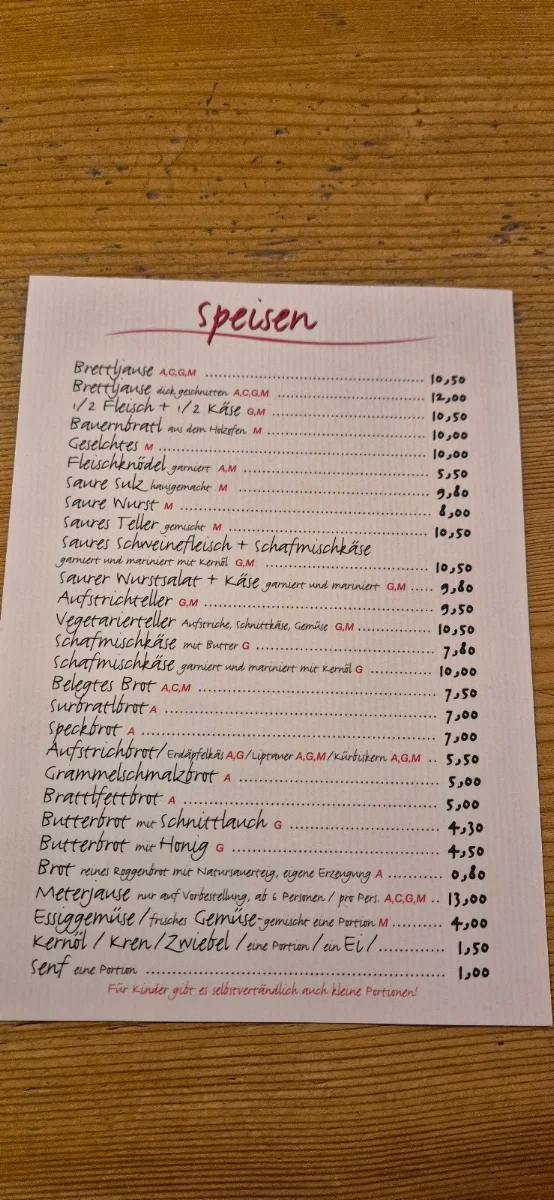 Speisen
Brettljause A,C,G,M ........ 10,50
Brettljause dick geschnitten A,C,G,M ........ 12,00
1/2 Fleisch + 1/2 Käse G,M ........ 10,50
Bauernbratl aus dem Holzofen M ........ 10,00
Geselchtes M ........ 10,00
Fleischknödel garniert A,M ........ 5,50
Saure Sulz hausgemacht M ........ 9,80
Saure Wurst M ........ 8,00
Saures Teller gemischt M ........ 10,50
Saures Schweinefleisch + Schafmischkäse
garniert und mariniert mit Kernöl G,M ........ 10,50
Saurer Wurstsalat + Käse garniert und mariniert G,M ..... 9,80
Aufstrichteller G,M ........ 9,50
Vegetarierteller Aufstriche, Schnittkäse, Gemüse G,M ........ 10,50
Schafmischkäse mit Butter G ........ 7,80
Schafmischkäse garniert und mariniert mit Kernöl G ........ 10,00
Belegtes Brot A,C,M ........ 7,50
Surbratlbrot A ........ 7,00
Speckbrot A ........ 7,00
Aufstrichbrot/Erdäpfelkäs A,G/Liptauer A,G,M/Kürbiskern A,G,M .. 5,50
Grammelschmalzbrot A ........ 5,00
Bratlfettbrot A ........ 5,00
Butterbrot mit Schnittlauch G ........ 4,30
Butterbrot mit Honig G ........ 4,50
Brot reines Roggenbrot mit Natursauerteig, eigene Erzeugung A ........ 0,80
Meterjause nur auf Vorbestellung, ab 6 Personen / pro Pers. A,C,G,M .. 13,00
Essiggemüse/frisches Gemüse-gemischt eine Portion M ........ 4,00
Kernöl / Kren / Zwiebel / eine Portion / ein Ei / ........ 1,50
Senf eine Portion ........ 1,00
Für Kinder gibt es selbstvertändlich auch kleine Portionen!